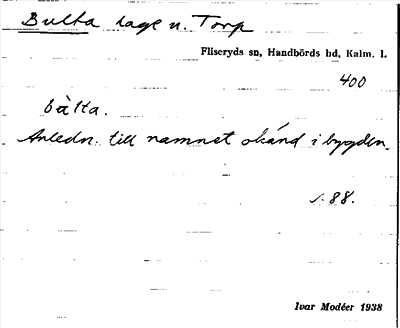 Bulta lage u. Torp
Fliseryds sn, Handbörds hd, Kalm. l.
400
bàlta.
Anledn. till namnet okänd i bygden.
s. 88.
Ivar Modéer 1938